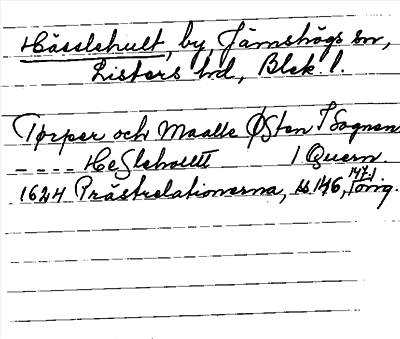 Hässlehult, by, Jämshögs sn,
Listers hd, Blek. l.
Tørper och Maalle Østen I Sognen
---- Heslehollt 1 Quern.
1624 Prästrelationerna, s. 146, 147 orig.